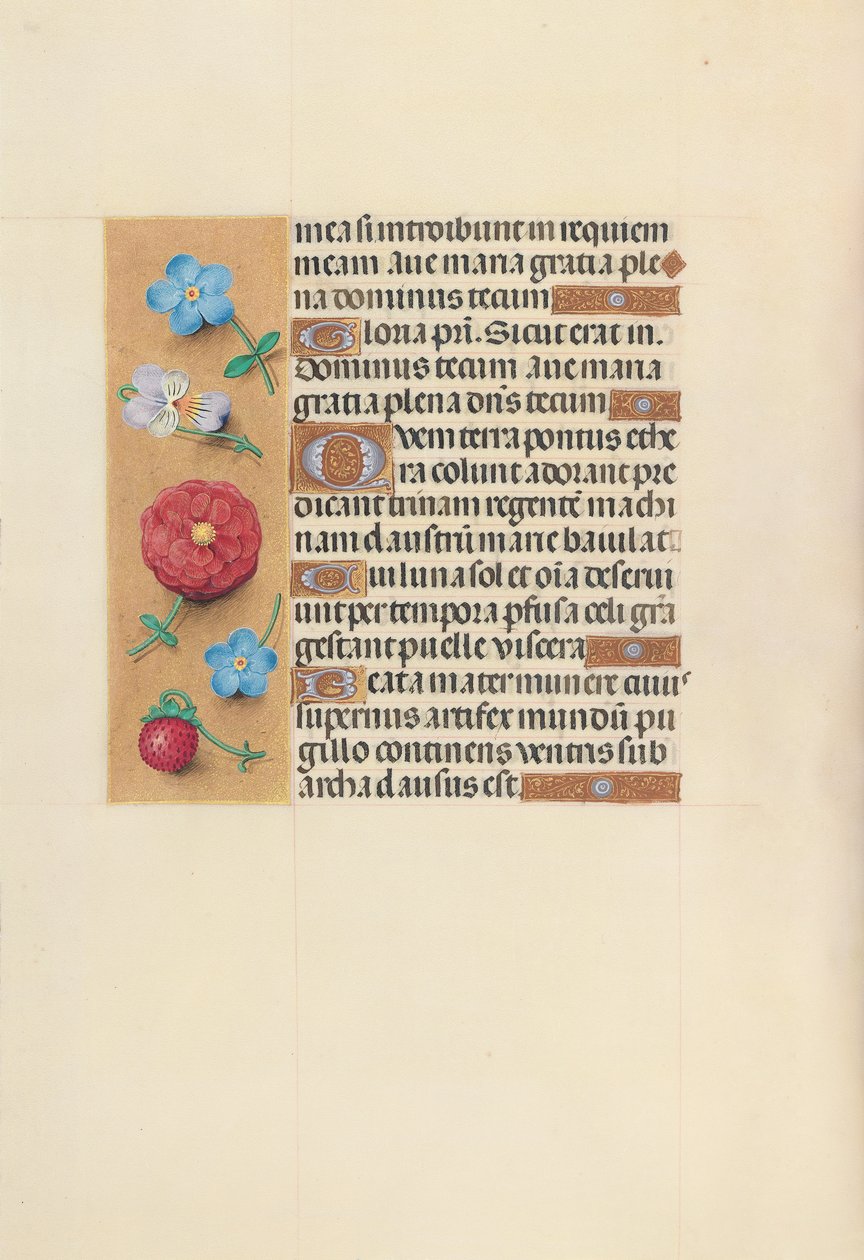 mea si introibunt in requiem
meam Aue maria gratia ple
na dominus tecum
Gloria pr̃i. Sicut erat in.
Dominus tecum Aue maria
gratia plena dñs tecum
Quem terra pontus ethe
ra colunt adorant pre
dicant trinam regentẽ machi
nam claustrũ marie baiulat
Cui luna sol et oĩa deserui
unt per tempora pfusa celi gr̃a
gestant puelle viscera
Beata mater munere cuius
supernus artifex mundũ pu
gillo continens ventris sub
archa clausus est.